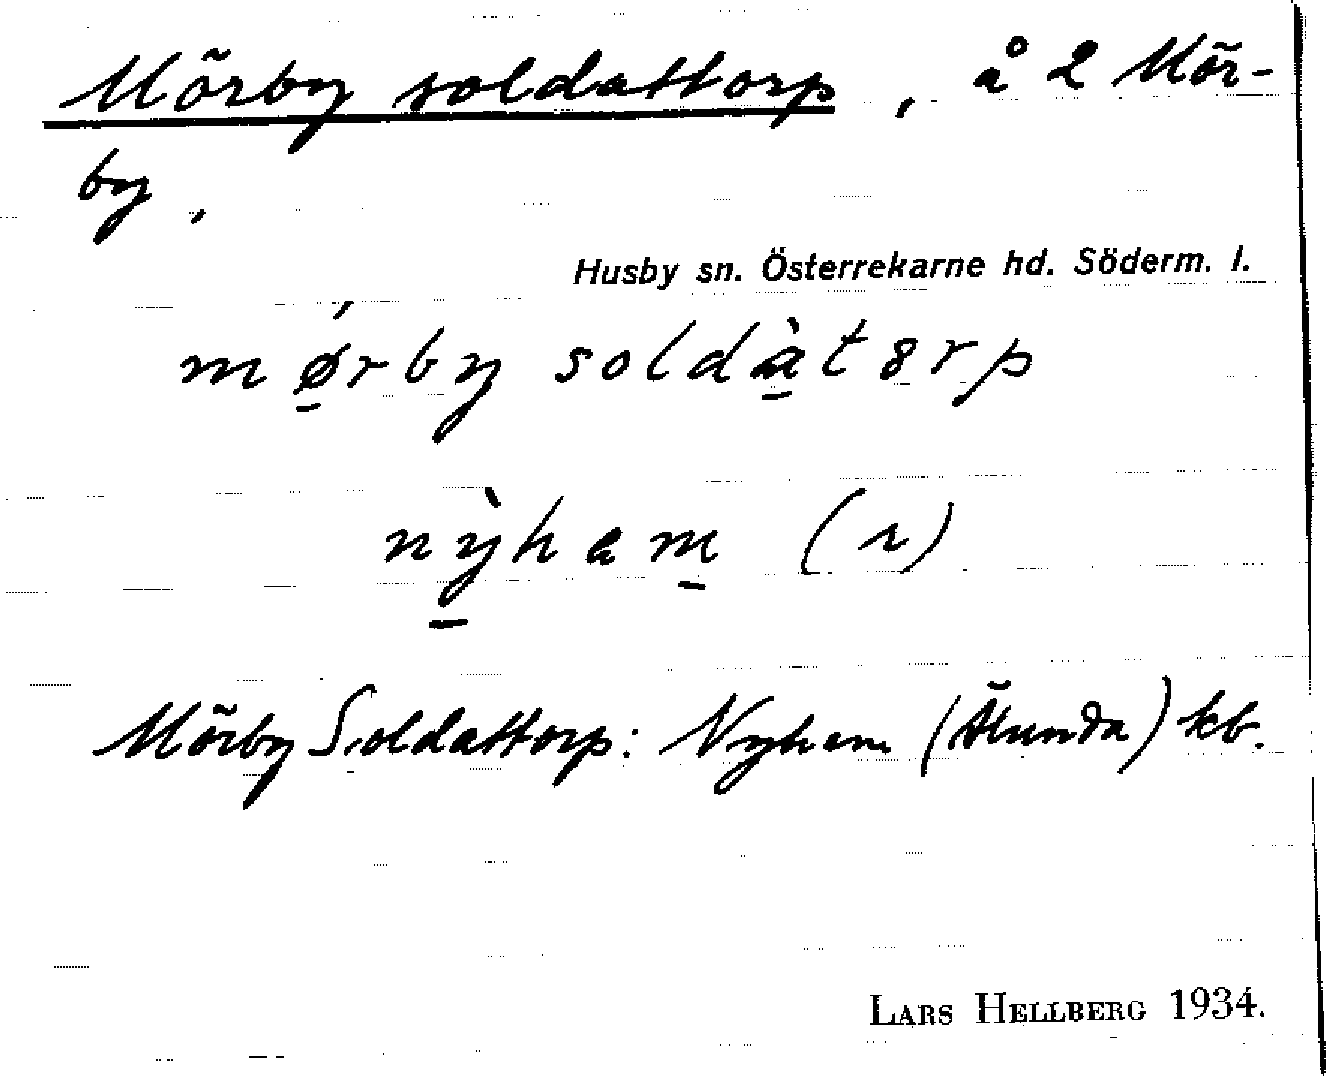 Mörby soldattorp, å 2 Mör-
by.
Husby sn. Österrekarne hd. Söderm. l.
mǿ̠rby soldà̠tȣrp
nỳ̠ham̠ (r)
Mörby Soldattorp: Nyhem (Ålunda) kb.
LARS HELLBERG 1934.